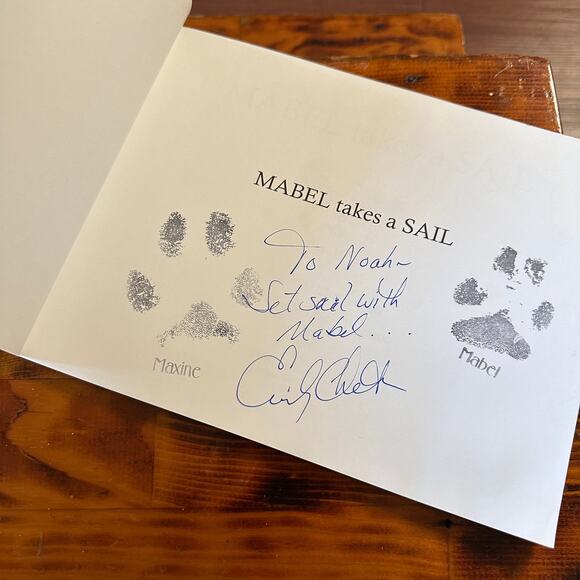 MABEL takes a SAIL
To Noah~
Set sail with
Mabel...
Maxine
Mabel